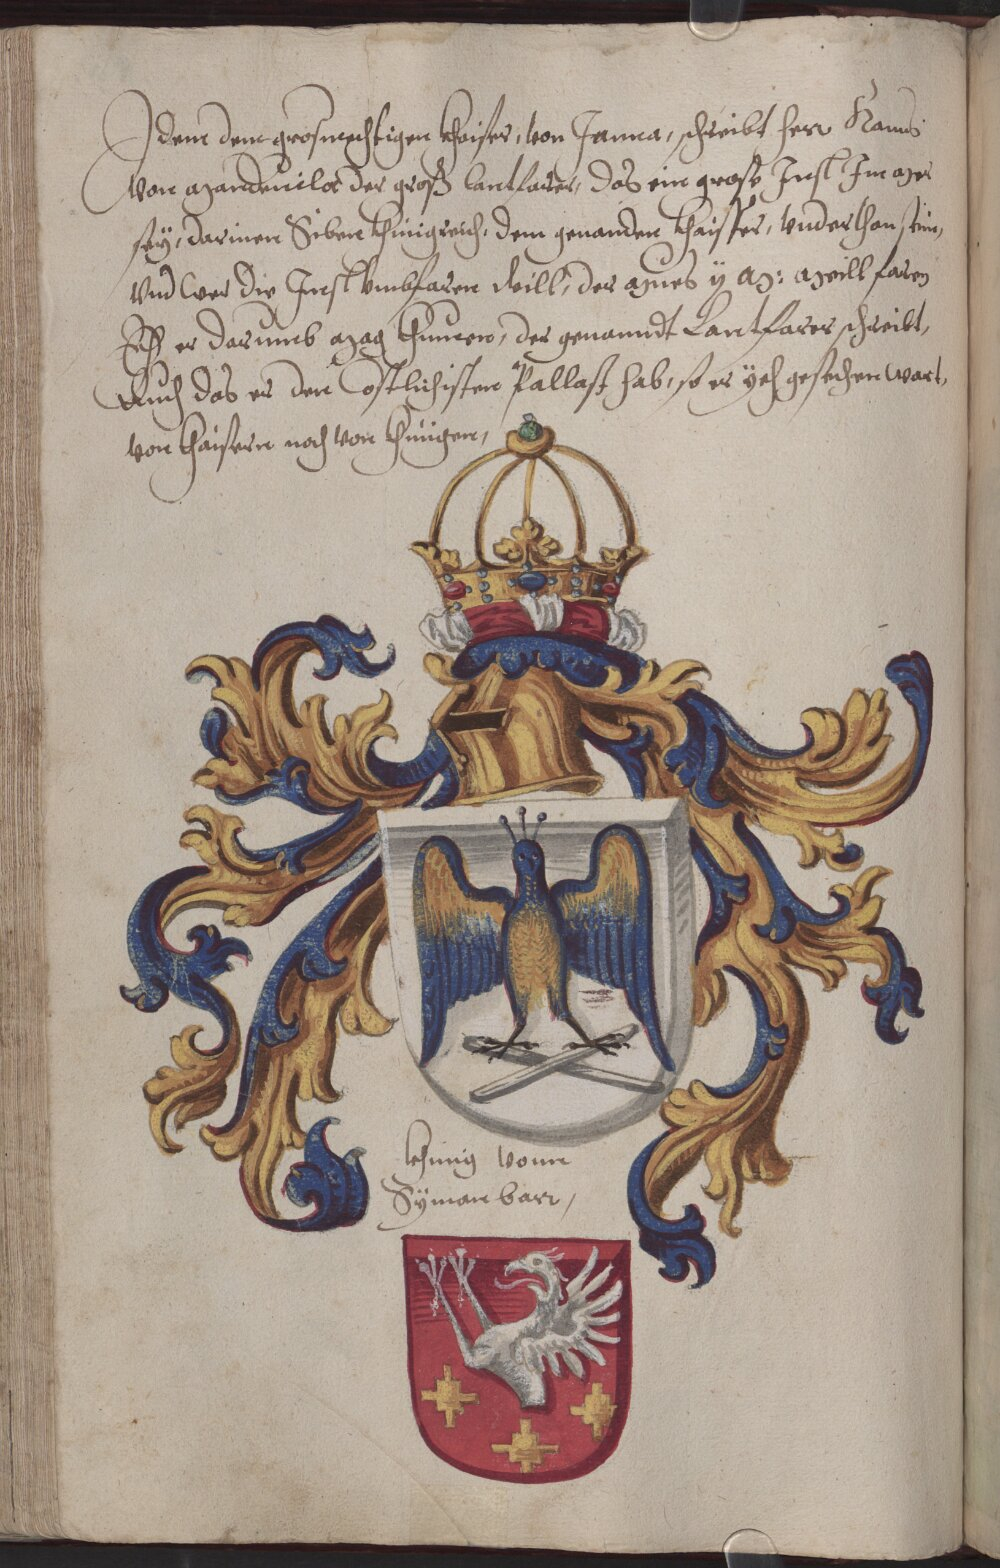 Idem dem grosmechtigen Khaiser, von Janna, schreibt herr Hanns
von Mandeuiloe der groß lantfarer, das ein grosse Insl Im Mer
seӱ, darinen Siben khinigreich, dem genanden khaisser, vnderthon sein,
vnd wer die Insl vmbfaren will, der mues ij M: meill faren
Eh er darumb mag khumen, der genanndt Lantfarer schreibt,
Auch das er den Costlichisten Pallast hab, so er ӱeh gesechen wart,
von khaisern noch von khünigen,
khinig vonn
Sÿmanbarr,